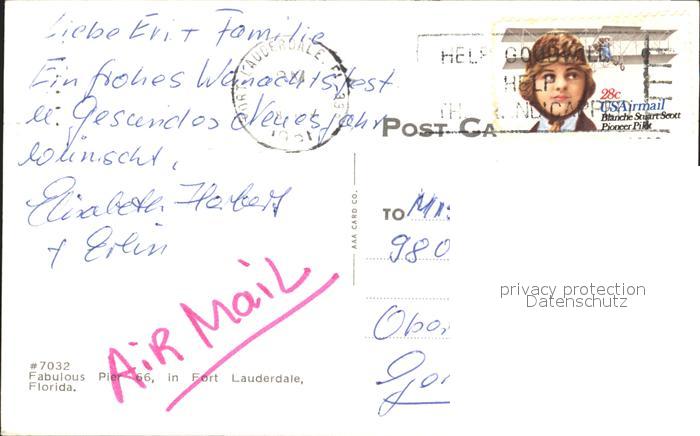 Liebe Evi + Familie
Ein frohes Weinachtsfest
u. gesundes Neues Jahr
wünscht,
Elisabeth Herbert
+ Erlin
AIR MAIL
#7032
Fabulous Pier 66, in Fort Lauderdale,
Florida.
AAA CARD CO.
FORT LAUDERDALE, FL
HELP GOODWILL
HELP
THE HANDICAPPED
28c
USAirmail
Blanche Stuart Scott
Pioneer Pilot
POST CA
TO
980
privacy protection
Datenschutz